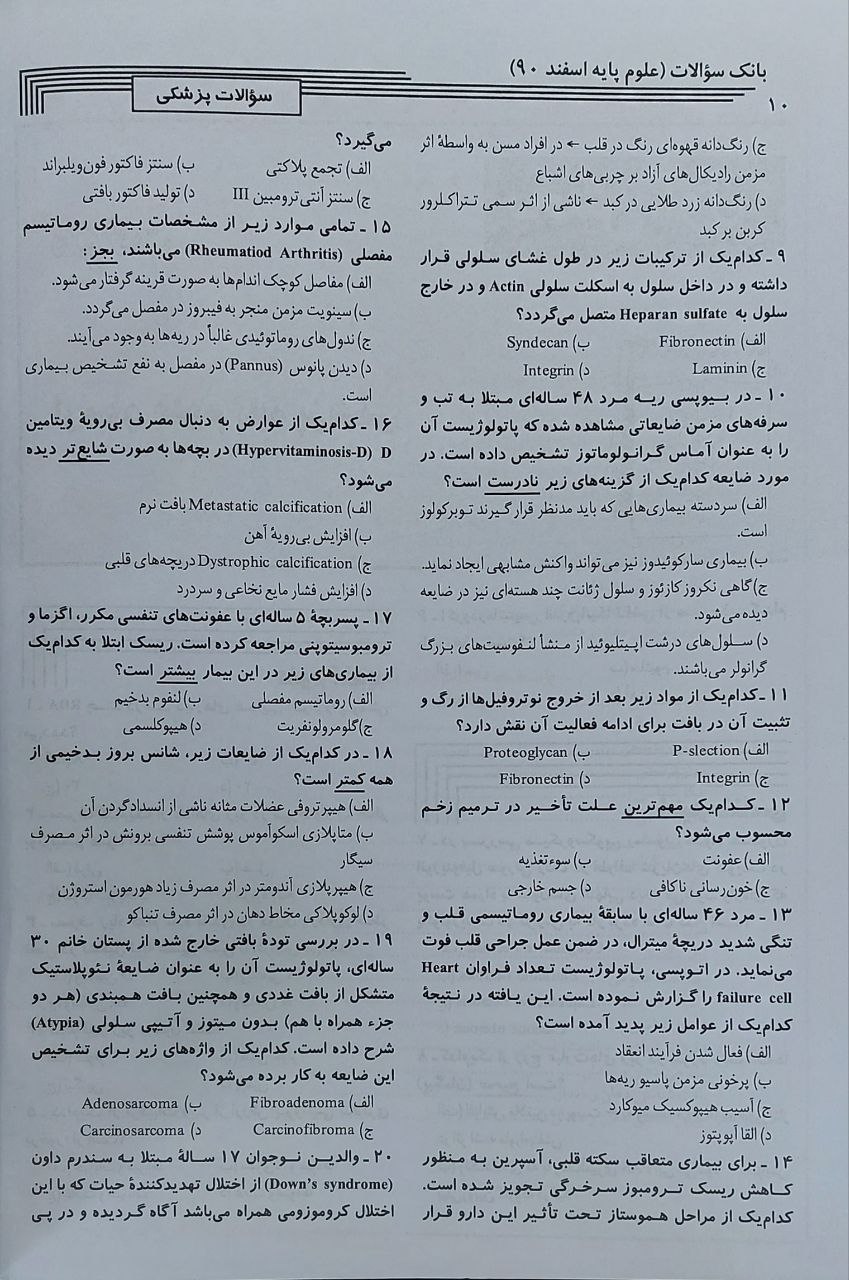 بانک سؤالات (علوم پایه اسفند ۹۰)
سؤالات پزشکی
۱۰
ج) رنگ‌دانه قهوه‌ای رنگ در قلب ← در افراد مسن به واسطهٔ اثر
مزمن رادیکال‌های آزاد بر چربی‌های اشباع
د) رنگ‌دانه زرد طلایی در کبد ← ناشی از اثر سمی تتراکلرور
کربن بر کبد
۹ ـ کدام‌یک از ترکیبات زیر در طول غشای سلولی قرار
داشته و در داخل سلول به اسکلت سلولی Actin و در خارج
سلول به Heparan sulfate متصل می‌گردد؟
الف) Fibronectin ب) Syndecan
ج) Laminin د) Integrin
۱۰ ـ در بیوپسی ریه مرد ۴۸ ساله‌ای مبتلا به تب و
سرفه‌های مزمن ضایعاتی مشاهده شده که پاتولوژیست آن
را به عنوان آماس گرانولوماتوز تشخیص داده است. در
مورد ضایعه کدام‌یک از گزینه‌های زیر نادرست است؟
الف) سردسته بیماری‌هایی که باید مدنظر قرار گیرند توبرکولوز
است.
ب) بیماری سارکوئیدوز نیز می‌تواند واکنش مشابهی ایجاد نماید.
ج) گاهی نکروز کازئوز و سلول ژئانت چند هسته‌ای نیز در ضایعه
دیده می‌شود.
د) سلول‌های درشت اپیتلیوئید از منشأ لنفوسیت‌های بزرگ
گرانولر می‌باشند.
۱۱ ـ کدام‌یک از مواد زیر بعد از خروج نوتروفیل‌ها از رگ و
تثبیت آن در بافت برای ادامه فعالیت آن نقش دارد؟
الف) P-slection ب) Proteoglycan
ج) Integrin د) Fibronectin
۱۲ ـ کدام‌یک مهم‌ترین علت تأخیر در ترمیم زخم
محسوب می‌شود؟
الف) عفونت ب) سوءتغذیه
ج) خون‌رسانی ناکافی د) جسم خارجی
۱۳ ـ مرد ۴۶ ساله‌ای با سابقهٔ بیماری روماتیسمی قلب و
تنگی شدید دریچهٔ میترال، در ضمن عمل جراحی قلب فوت
می‌نماید. در اتوپسی، پاتولوژیست تعداد فراوان Heart
failure cell را گزارش نموده است. این یافته در نتیجهٔ
کدام‌یک از عوامل زیر پدید آمده است؟
الف) فعال شدن فرآیند انعقاد
ب) پرخونی مزمن پاسیو ریه‌ها
ج) آسیب هیپوکسیک میوکارد
د) القا آپوپتوز
۱۴ ـ برای بیماری متعاقب سکته قلبی، آسپرین به منظور
کاهش ریسک ترومبوز سرخرگی تجویز شده است.
کدام‌یک از مراحل هموستاز تحت تأثیر این دارو قرار
می‌گیرد؟
الف) تجمع پلاکتی ب) سنتز فاکتور فون‌ویلبراند
ج) سنتز آنتی‌ترومبین III د) تولید فاکتور بافتی
۱۵ ـ تمامی موارد زیر از مشخصات بیماری روماتیسم
مفصلی (Rheumatiod Arthritis) می‌باشند، بجز:
الف) مفاصل کوچک اندام‌ها به صورت قرینه گرفتار می‌شود.
ب) سینویت مزمن منجر به فیبروز در مفصل می‌گردد.
ج) ندول‌های روماتوئیدی غالباً در ریه‌ها به وجود می‌آیند.
د) دیدن پانوس (Pannus) در مفصل به نفع تشخیص بیماری
است.
۱۶ ـ کدام‌یک از عوارض به دنبال مصرف بی‌رویهٔ ویتامین
D (Hypervitaminosis-D) در بچه‌ها به صورت شایع‌تر دیده
می‌شود؟
الف) Metastatic calcification بافت نرم
ب) افزایش بی‌رویهٔ آهن
ج) Dystrophic calcification دریچه‌های قلبی
د) افزایش فشار مایع نخاعی و سردرد
۱۷ ـ پسربچهٔ ۵ ساله‌ای با عفونت‌های تنفسی مکرر، اگزما و
ترومبوسیتوپنی مراجعه کرده است. ریسک ابتلا به کدام‌یک
از بیماری‌های زیر در این بیمار بیشتر است؟
الف) روماتیسم مفصلی ب) لنفوم بدخیم
ج) گلومرولونفریت د) هیپوکلسمی
۱۸ ـ در کدام‌یک از ضایعات زیر، شانس بروز بدخیمی از
همه کمتر است؟
الف) هیپرتروفی عضلات مثانه ناشی از انسدادگردن آن
ب) متاپلازی اسکواموس پوشش تنفسی برونش در اثر مصرف
سیگار
ج) هیپرپلازی آندومتر در اثر مصرف زیاد هورمون استروژن
د) لوکوپلاکی مخاط دهان در اثر مصرف تنباکو
۱۹ ـ در بررسی تودهٔ بافتی خارج شده از پستان خانم ۳۰
ساله‌ای، پاتولوژیست آن را به عنوان ضایعهٔ نئوپلاستیک
متشکل از بافت غددی و همچنین بافت همبندی (هر دو
جزء همراه با هم) بدون میتوز و آتیپی سلولی (Atypia)
شرح داده است. کدام‌یک از واژه‌های زیر برای تشخیص
این ضایعه به کار برده می‌شود؟
الف) Fibroadenoma ب) Adenosarcoma
ج) Carcinofibroma د) Carcinosarcoma
۲۰ ـ والدین نوجوان ۱۷ سالهٔ مبتلا به سندرم داون
(Down's syndrome) از اختلال تهدیدکنندهٔ حیات که با این
اختلال کروموزومی همراه می‌باشد آگاه گردیده و در پی